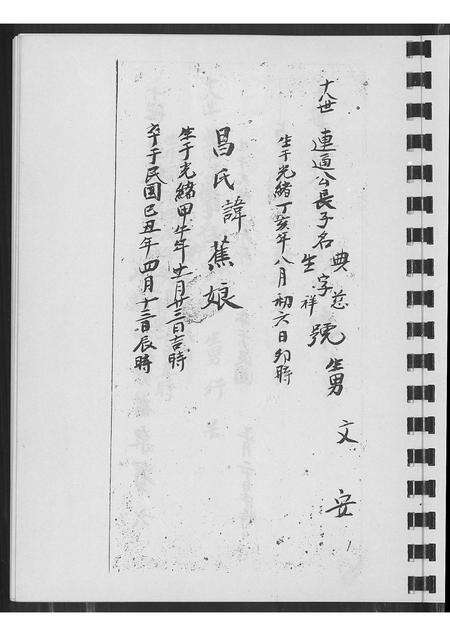 十八世 連通公長子名典惹生字祥號 生男 文 安
生于光緒丁亥年八月初六日卯時
昌氏諱蕉娘
生于光緒甲午年十一月廿三日吉時
卒于民國己丑年四月十三日辰時